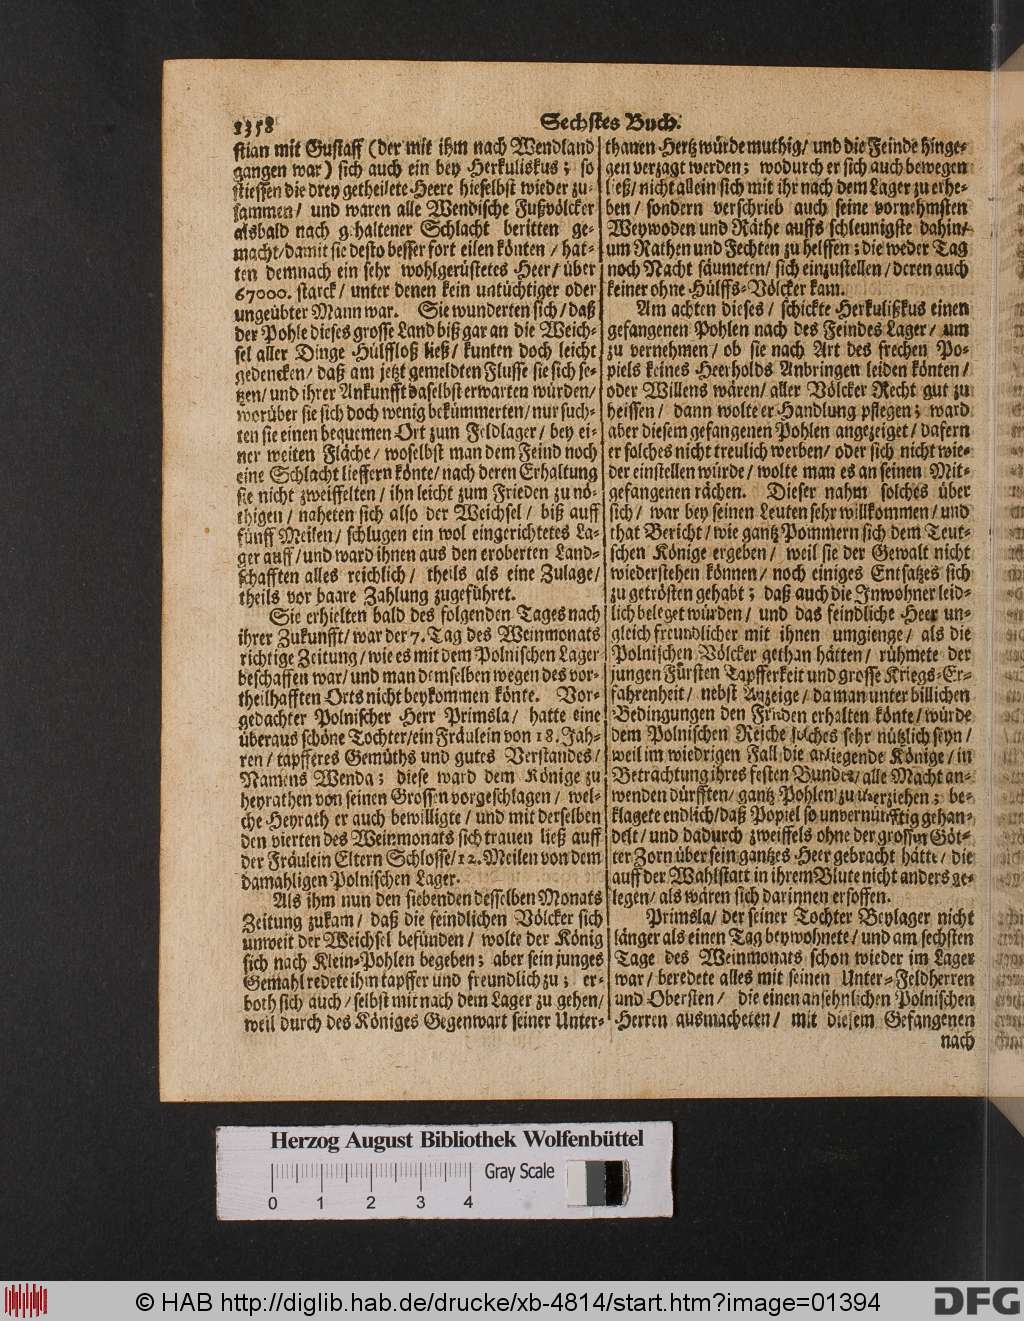 1358
Sechstes Buch.
stian mit Gustaff (der mit ihm nach Wendland
gangen war) sich auch ein bey Herkuliskus; so
stiessen die drey getheilete Heere hieselbst wieder zu-
sammen/ und waren alle Wendische Fußvölcker
alsbald nach gehaltener Schlacht beritten ge-
macht/damit sie desto besser fort eilen könten/ hat-
ten demnach ein sehr wohlgerüstetes Heer/ über
67000. starck/ unter denen kein untüchtiger oder
ungeübter Mann war. Sie wunderten sich/ daß
der Pohle dieses grosse Land biß gar an die Weich-
sel aller Dinge Hülffloß ließ/ kunten doch leicht
gedencken/ daß am jetzt gemeldten Flusse sie sich se-
tzen/und ihrer Ankunfft daselbst erwarten würden/
worüber sie sich doch wenig bekümmerten/nur such-
ten sie einen bequemen Ort zum Feldlager/ bey ei-
ner weiten Fläche/ woselbst man dem Feind noch
eine Schlacht lieffern könte/nach deren Erhaltung
sie nicht zweiffelten/ ihn leicht zum Frieden zu nö-
thigen/ naheten sich also der Weichsel/ biß auff
fünff Meilen/ schlugen ein wol eingerichtetes La-
ger auff/und ward ihnen aus den eroberten Land-
schafften alles reichlich/ theils als eine Zulage/
theils vor baare Zahlung zugeführet.
Sie erhielten bald des folgenden Tages nach
ihrer Zukunfft/war der 7. Tag des Weinmonats
richtige Zeitung/wie es mit dem Polnischen Lager
beschaffen war/und man demselben wegen des vor-
theilhafften Orts nicht beykommen könte. Vor-
gedachter Polnischer Herr Primsla/ hatte eine
überaus schöne Tochter/ein Fräulein von 18. Jah-
ren/ tapfferes Gemüths und gutes Verstandes/
Namens Wenda; diese ward dem Könige zu
heyrathen von seinen Grossen vorgeschlagen/ wel-
che Heyrath er auch bewilligte/ und mit derselben
den vierten des Weinmonats sich trauen ließ auff
der Fräulein Eltern Schlosse/12. Meilen von dem
damahligen Polnischen Lager.
Als ihm nun den siebenden desselben Monats
Zeitung zukam/ daß die feindlichen Völcker sich
unweit der Weichsel befünden/ wolte der König
sich nach Klein-Pohlen begeben; aber sein junges
Gemahl redete ihm tapffer und freundlich zu; er-
both sich auch/selbst mit nach dem Lager zu gehen/
weil durch des Königes Gegenwart seiner Unter-
thanen Hertz würde muthig/ und die Feinde hinge-
gen verzagt werden; wodurch er sich auch bewegen
ließ/ nicht allein sich mit ihr nach dem Lager zu erhe-
ben/ sondern verschrieb auch seine vornehmsten
Weywoden und Räthe auffs schleunigste dahin/
um Rathen und Fechten zu helffen; die weder Tag
noch Nacht säumeten/ sich einzustellen/ deren auch
keiner ohne Hülffs-Völcker kam.
Am achten dieses/ schickte Herkulißkus einen
gefangenen Pohlen nach des Feindes Lager/ um
zu vernehmen/ ob sie nach Art des frechen Po-
piels keines Heerholds Anbringen leiden könten/
oder Willens wären/ aller Völcker Recht gut zu
heissen/ dann wolte er Handlung pflegen; ward
aber diesem gefangenen Pohlen angezeiget/ dafern
er solches nicht treulich werben/ oder sich nicht wie-
der einstellen würde/ wolte man es an seinen Mit-
gefangenen rächen. Dieser nahm solches über
sich/ war bey seinen Leuten sehr willkommen/ und
that Bericht/ wie gantz Pommern sich dem Teut-
schen Könige ergeben/ weil sie der Gewalt nicht
wiederstehen können/ noch einiges Entsatzes sich
zu getrösten gehabt; daß auch die Inwohner leid-
lich beleget würden/ und das feindliche Heer un-
gleich freundlicher mit ihnen umgienge/ als die
Polnischen Völcker gethan hätten/ rühmete der
jungen Fürsten Tapfferkeit und grosse Kriegs-Er-
fahrenheit/ nebst Anzeige/ da man unter billichen
Bedingungen den Frieden erhalten könte/ würde
dem Polnischen Reiche solches sehr nützlich seyn/
weil im wiedrigen Fall die anliegende Könige/ in
Betrachtung ihres festen Bundes/ alle Macht an-
wenden dürfften/ gantz Pohlen zu überziehen; be-
klagete endlich/daß Popiel so unvernünfftig gehan-
delt/ und dadurch zweiffels ohne der grossen Göt-
ter Zorn über sein gantzes Heer gebracht hätte/ die
auff der Wahlstatt in ihrem Blute nicht anders ge-
legen/ als wären sich darinnen ersoffen.
Primsla/ der seiner Tochter Beylager nicht
länger als einen Tag beywohnete/ und am sechsten
Tage des Weinmonats schon wieder im Lager
war/ beredete alles mit seinen Unter-Feldherren
und Obersten/ die einen ansehnlichen Polnischen
Herren ausmacheten/ mit diesem Gefangenen
nach
Herzog August Bibliothek Wolfenbüttel
Gray Scale
0 1 2 3 4
© HAB http://diglib.hab.de/drucke/xb-4814/start.htm?image=01394
DFG